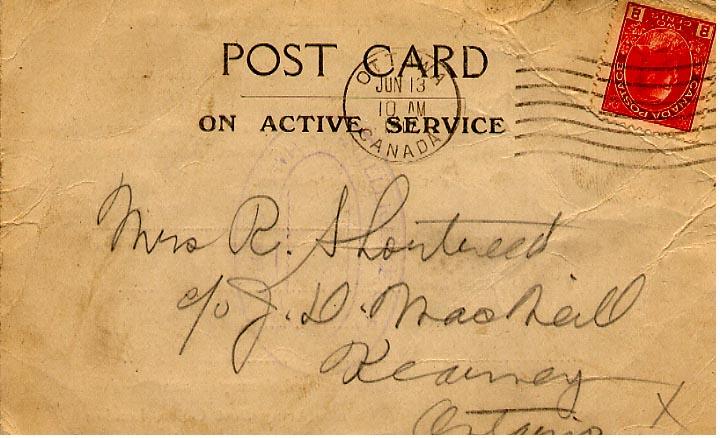 POST CARD
OTTAWA
JUN 13
10 AM
CANADA
ON ACTIVE SERVICE
TWO CENTS
CANADA POSTAGE
Mrs R. Shortreed
c/o J. D. MacNeill
Kearney
Ontario
X